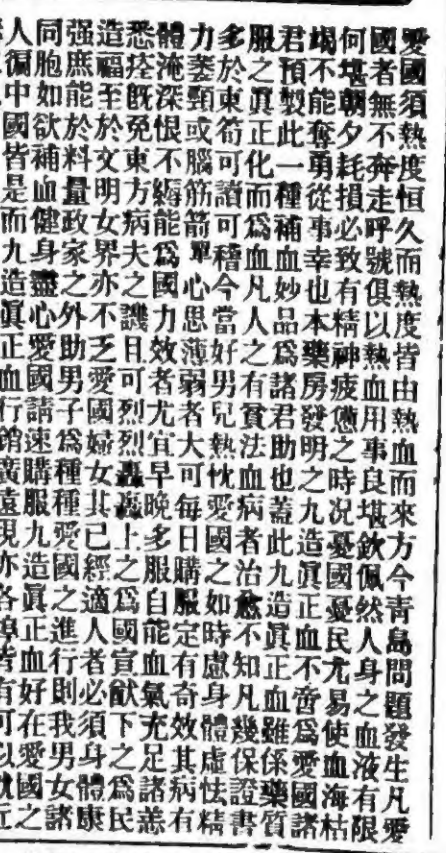 愛國須熱度恒久而熱度皆由熱血而來方今青島問題發生凡愛
國者無不奔走呼號俱以熱血用事良堪欽佩然人身之血液有限
何堪朝夕耗損必致有精神疲憊之時况憂國憂民尤易使血海枯
竭不能奪勇從事幸也本藥房發明之九造眞正血不啻爲愛國諸
君預製此一種補血妙品爲諸君助也蓋此九造眞正血雖係藥質
服之眞正化而爲血凡人之有貧法血病者治愈不知凡幾保證書
多於東筍可證可稽今當好男兒熱忱愛國之如時慮身體虛怯精
力萎頸或腦筋箭單心思薄弱者大可每日購服定有奇效其病有
體淹深恨不能爲國力效者尤宜早晚多服自能血氣充足諸恙
悉痊既免東方病夫之譏日可烈烈轟轟上之爲國宣猷下之爲民
造福至於文明女界亦不乏愛國婦女其已經適人者必須身體康
强庶能於料量政家之外助男子爲種種愛國之進行則我男女諸
同胞如欲補血健身盡心愛國請速購服九造眞正血好在愛國之
人徧中國皆是而九造眞正血行銷廣遠現亦各埠皆有可以就近